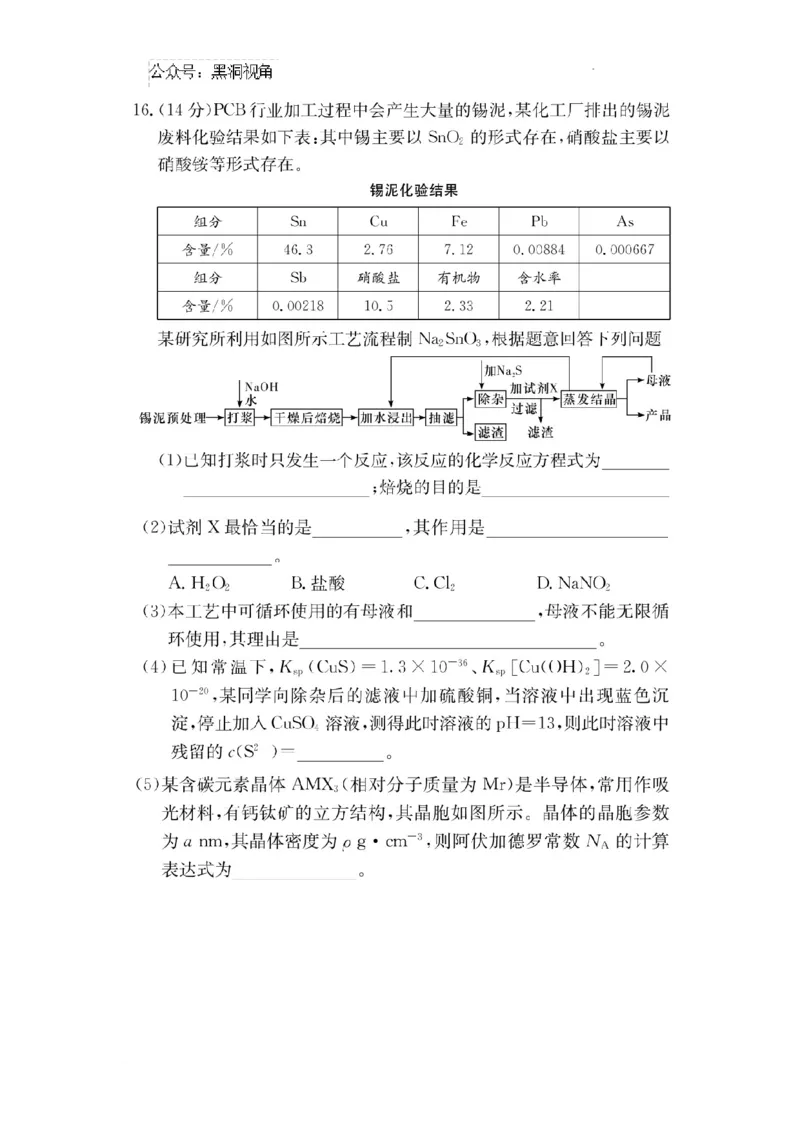 公众号：黑洞视角
16.(14分)PCB行业加工过程中会产生大量的锡泥,某化工厂排出的锡泥
废料化验结果如下表:其中锡主要以 SnO₂ 的形式存在,硝酸盐主要以
硝酸铵等形式存在。
锡泥化验结果
组分 Sn Cu Fe Pb As
含量/% 46.3 2.76 7.12 0.00884 0.000667
组分 Sb 硝酸盐 有机物 含水率
含量/% 0.00218 10.5 2.33 2.21
某研究所利用如图所示工艺流程制 Na₂SnO₃,根据题意回答下列问题
加Na₂S
NaOH
水
除杂
加试剂X
过滤
蒸发结晶
母液
锡泥预处理
打浆
干燥后焙烧
加水浸出
抽滤
产品
滤渣
滤渣
(1)已知打浆时只发生一个反应,该反应的化学反应方程式为________
____________________;焙烧的目的是____________________
(2)试剂 X 最恰当的是__________,其作用是____________________
____________。
A. H₂O₂ B. 盐酸 C. Cl₂ D. NaNO₂
(3)本工艺中可循环使用的有母液和______________,母液不能无限循
环使用,其理由是________________________________。
(4)已知常温下,Ksp(CuS)=1.3×10⁻³⁶、Ksp[Cu(OH)₂]=2.0×
10⁻²⁰,某同学向除杂后的滤液中加硫酸铜,当溶液中出现蓝色沉
淀,停止加入 CuSO₄ 溶液,测得此时溶液的 pH=13,则此时溶液中
残留的 c(S² )=__________。
(5)某含碳元素晶体 AMX₃(相对分子质量为 Mr)是半导体,常用作吸
光材料,有钙钛矿的立方结构,其晶胞如图所示。晶体的晶胞参数
为 a nm,其晶体密度为 ρ g·cm⁻³,则阿伏加德罗常数 N_A 的计算
表达式为______________。